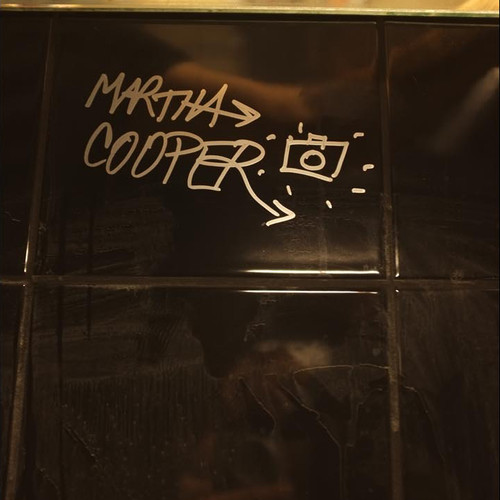 MARTHA
COOPER